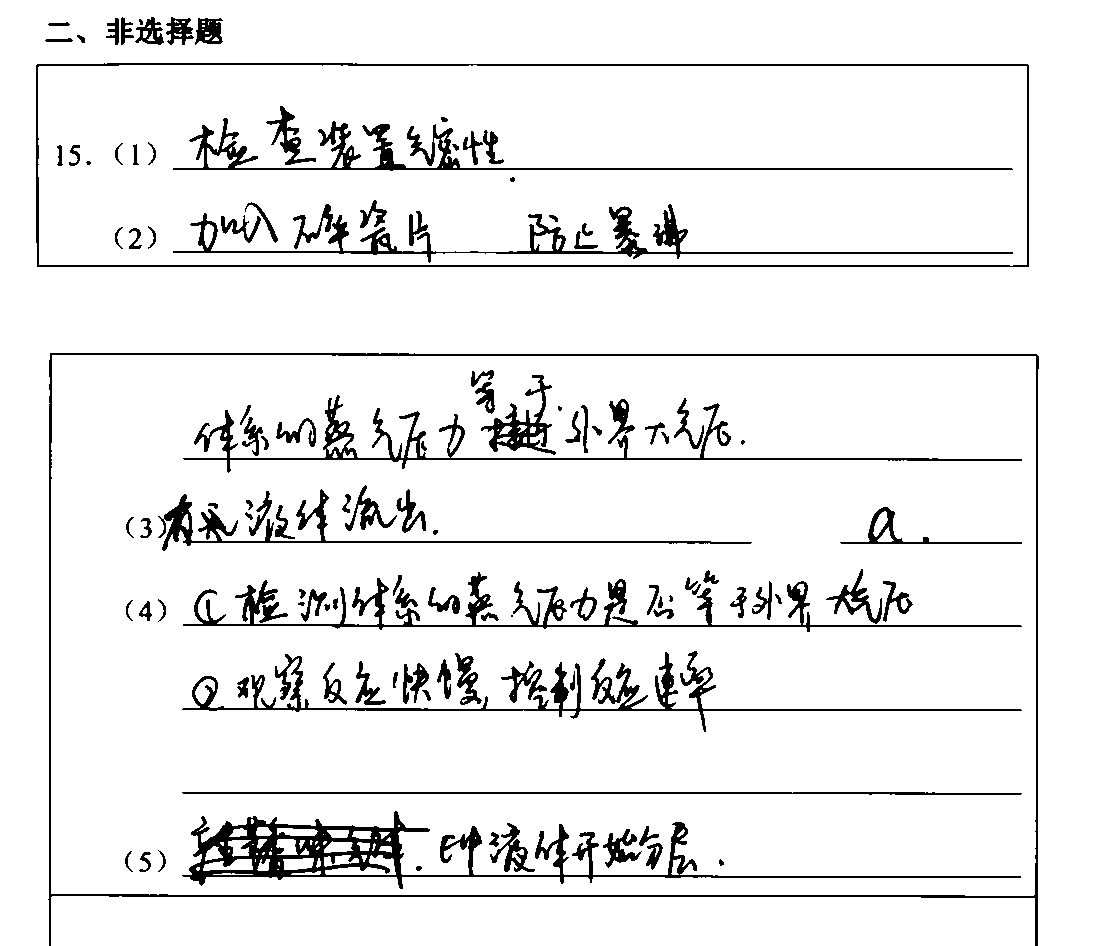 二、非选择题
15.（1） 检查装置气密性.
（2） 加入碎瓷片 防止暴沸
等于
体系的蒸气压力 外界大气压.
（3） 液体流出. a.
（4） ①检测体系的蒸气压力是否等于外界大气压
②观察反应快慢,控制反应速率
（5） E中液体开始分层.